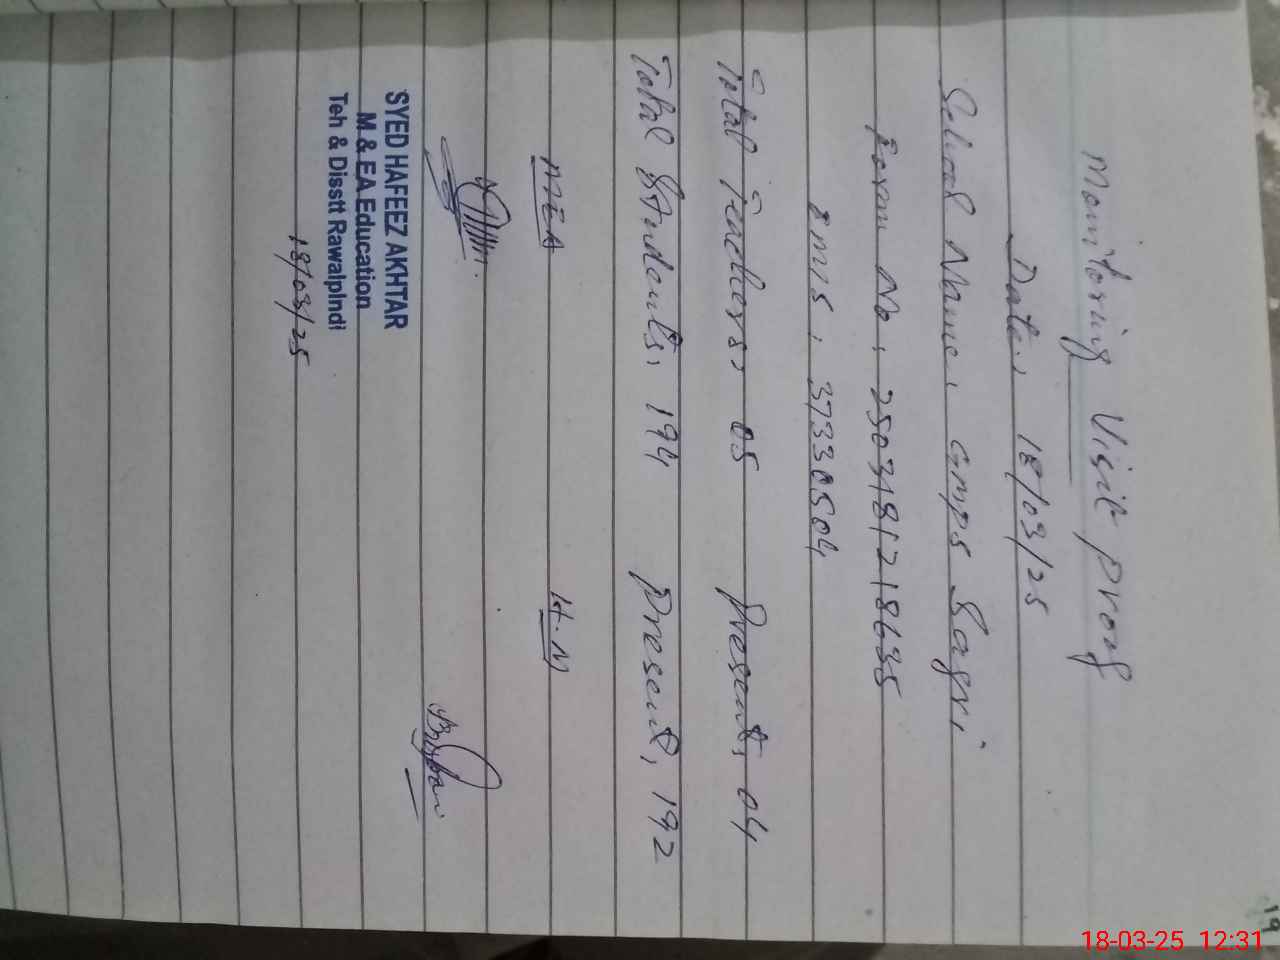 Monitoring Visit Proof
Date, 18/03/25
School Name, GMPS Sagri
Form No, 2503181218635
EMIS, 37330504
Total Teachers, 05 Present, 04
Total Students, 194 Present, 192
MEA H.M
SYED HAFEEZ AKHTAR
M & EA Education
Teh & Disstt RawalpIndi
18/03/25
19
18-03-25 12:31